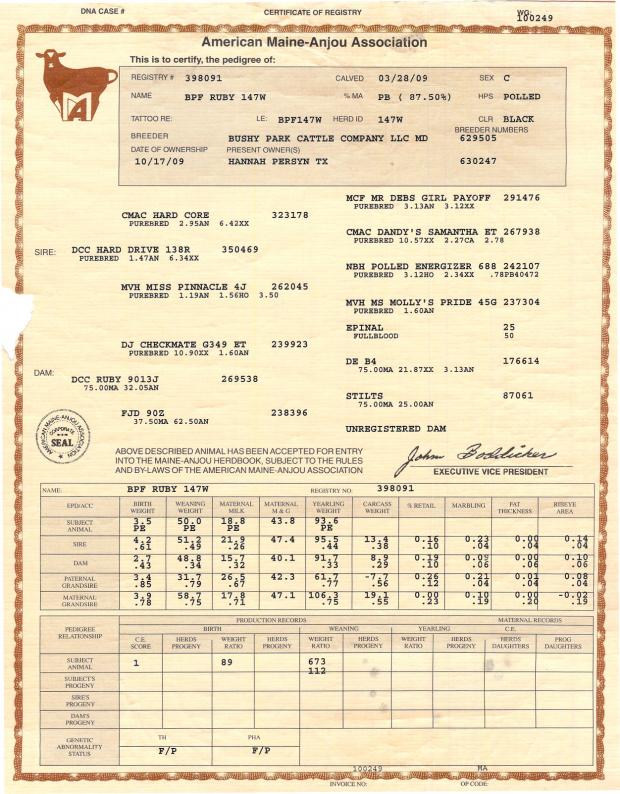 DNA CASE # CERTIFICATE OF REGISTRY WG:
100249
American Maine-Anjou Association
This is to certify, the pedigree of:
REGISTRY # 398091 CALVED 03/28/09 SEX C
NAME BPF RUBY 147W % MA PB ( 87.50%) HPS POLLED
TATTOO RE: LE: BPF147W HERD ID 147W CLR BLACK
BREEDER BUSHY PARK CATTLE COMPANY LLC MD BREEDER NUMBERS 629505
DATE OF OWNERSHIP PRESENT OWNER(S)
10/17/09 HANNAH PERSYN TX 630247
MCF MR DEBS GIRL PAYOFF 291476
PUREBRED 3.13AN 3.12XX
CMAC HARD CORE 323178
PUREBRED 2.95AN 6.42XX
CMAC DANDY'S SAMANTHA ET 267938
PUREBRED 10.57XX 2.27CA 2.78
SIRE: DCC HARD DRIVE 138R 350469
PUREBRED 1.47AN 6.34XX
NBH POLLED ENERGIZER 688 242107
PUREBRED 3.12HO 2.34XX .78PB40472
MVH MISS PINNACLE 4J 262045
PUREBRED 1.19AN 1.56HO 3.50
MVH MS MOLLY'S PRIDE 45G 237304
PUREBRED 1.60AN
EPINAL 25
FULLBLOOD 50
DJ CHECKMATE G349 ET 239923
PUREBRED 10.90XX 1.60AN
DE B4 176614
75.00MA 21.87XX 3.13AN
DAM: DCC RUBY 9013J 269538
75.00MA 32.05AN
STILTS 87061
75.00MA 25.00AN
FJD 90Z 238396
37.50MA 62.50AN
UNREGISTERED DAM
AMERICAN MAINE-ANJOU ASSOCIATION
CORPORATE
SEAL
ABOVE DESCRIBED ANIMAL HAS BEEN ACCEPTED FOR ENTRY
INTO THE MAINE-ANJOU HERDBOOK, SUBJECT TO THE RULES
AND BY-LAWS OF THE AMERICAN MAINE-ANJOU ASSOCIATION
John Boddicker
EXECUTIVE VICE PRESIDENT
NAME: BPF RUBY 147W REGISTRY NO: 398091
EPD/ACC BIRTH WEIGHT WEANING WEIGHT MATERNAL MILK MATERNAL M & G YEARLING WEIGHT CARCASS WEIGHT % RETAIL MARBLING FAT THICKNESS RIBEYE AREA
SUBJECT ANIMAL 3.5 50.0 18.8 43.8 93.6
PE PE PE PE
SIRE 4.2 51.2 21.9 47.4 95.5 13.4 0.16 0.23 0.00 0.14
.61 .49 .26 .44 .38 .10 .04 .04 .04
DAM 2.7 48.8 15.7 40.1 91.7 8.9 0.19 0.09 0.00 0.10
.43 .34 .32 .33 .29 .10 .06 .06 .06
PATERNAL GRANDSIRE 3.4 31.7 26.5 42.3 61.7 -7.7 0.26 0.21 0.01 0.08
.85 .79 .67 .77 .56 .12 .04 .04 .04
MATERNAL GRANDSIRE 3.9 58.7 17.8 47.1 106.3 19.1 0.00 0.10 0.00 -0.02
.78 .75 .71 .75 .55 .23 .19 .20 .19
PRODUCTION RECORDS MATERNAL RECORDS
PEDIGREE RELATIONSHIP BIRTH WEANING YEARLING C.E.
C.E. SCORE HERDS PROGENY WEIGHT RATIO HERDS PROGENY WEIGHT RATIO HERDS PROGENY WEIGHT RATIO HERDS PROGENY HERDS DAUGHTERS PROG DAUGHTERS
SUBJECT ANIMAL 1 89 673
112
SUBJECT'S PROGENY
SIRE'S PROGENY
DAM'S PROGENY
GENETIC ABNORMALITY STATUS TH PHA
F/P F/P
100249 MA
INVOICE NO: OP CODE: